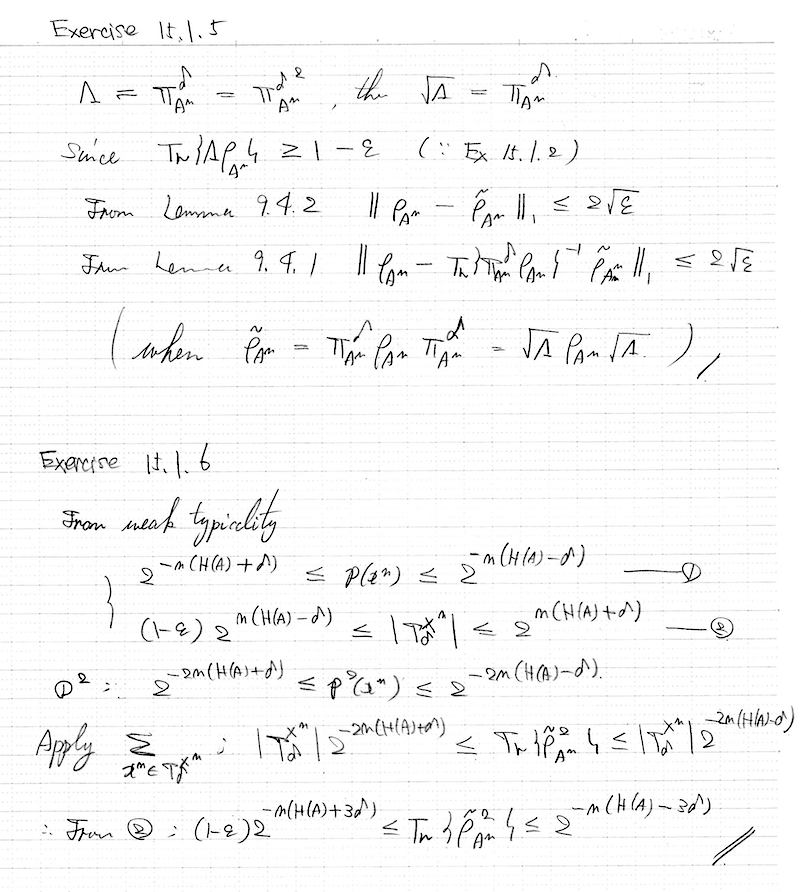 Exercise 15.1.5
Λ = Π_{A^n}^δ = Π_{A^n}^{δ 2}, the √Λ = Π_{A^n}^δ
Since Tr{Λρ_{A^n}} ≥ 1 − ε (∵ Ex 15.1.2)
From Lemma 9.4.2 ‖ρ_{A^n} − ρ̃_{A^n}‖_1 ≤ 2√ε
From Lemma 9.4.1 ‖ρ_{A^n} − Tr{Π_{A^n}^δ ρ_{A^n}}^{-1} ρ̃_{A^n}‖_1 ≤ 2√ε
(when ρ̃_{A^n} = Π_{A^n}^δ ρ_{A^n} Π_{A^n}^δ = √Λ ρ_{A^n} √Λ.),
Exercise 15.1.6
From weak typicality
2^{-n(H(A)+δ)} ≤ p(x^n) ≤ 2^{-n(H(A)−δ)} —①
(1−ε) 2^{n(H(A)−δ)} ≤ |T_δ^{X^n}| ≤ 2^{n(H(A)+δ)} —②
①^2 : 2^{-2n(H(A)+δ)} ≤ p^2(x^n) ≤ 2^{-2n(H(A)−δ)}.
Apply Σ_{x^n∈T_δ^{X^n}} ; |T_δ^{X^n}| 2^{-2n(H(A)+δ)} ≤ Tr{ρ̃_{A^n}^2} ≤ |T_δ^{X^n}| 2^{-2n(H(A)−δ)}
∴ From ② ; (1−ε)2^{-n(H(A)+3δ)} ≤ Tr{ρ̃_{A^n}^2} ≤ 2^{-n(H(A)−3δ)}